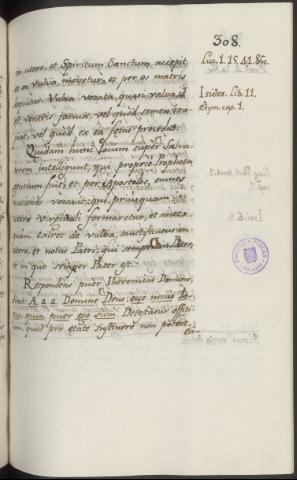 308.
in utero, et Spiritum Sanctum accepit,
et in vulva movetur, et per os matris
loquitur. Vulva vocata, quasi valva, id
est ventris janua, vel quod semen
iat, vel quod ex ea fetus procedat.
Quidam hunc locum super Salva-
rem intelligunt, qui proprie Propheta
gentium fuit, et per Apostolos omnes
nationes vocavit: qui priusquam in
utero Virginali formaretur, et ante-
quam exiret de vulva, sanctificatur in
utero, et notus Patri, qui semper in Patre,
et in quo semper Pater est.
Respondens puer Iheremias Domino,
ait: A. a. a. Domine Deus: ecce nescio lo-
qui, quia puer ego sum. Detestatur offiti-
um, quod pro etate sustinere non potest
ea-
Luc. 1. 15. 41. &c.
Isidor. Lib. 11.
Etym. cap. 1.